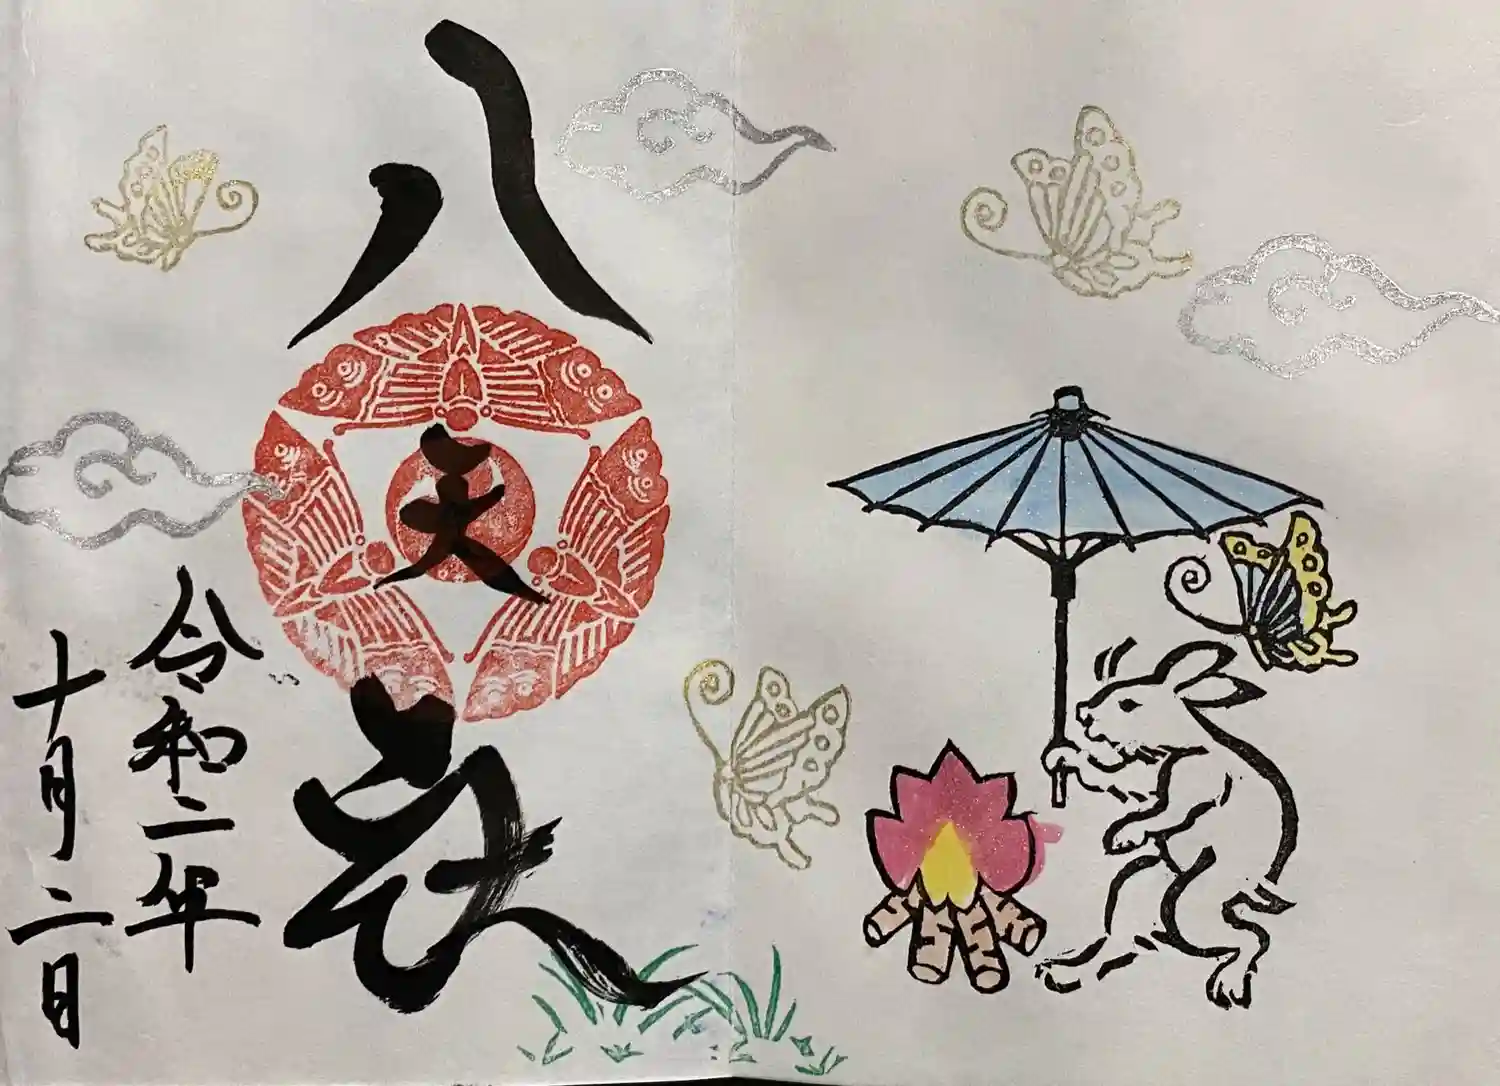 八天社
令和二年
十月二日